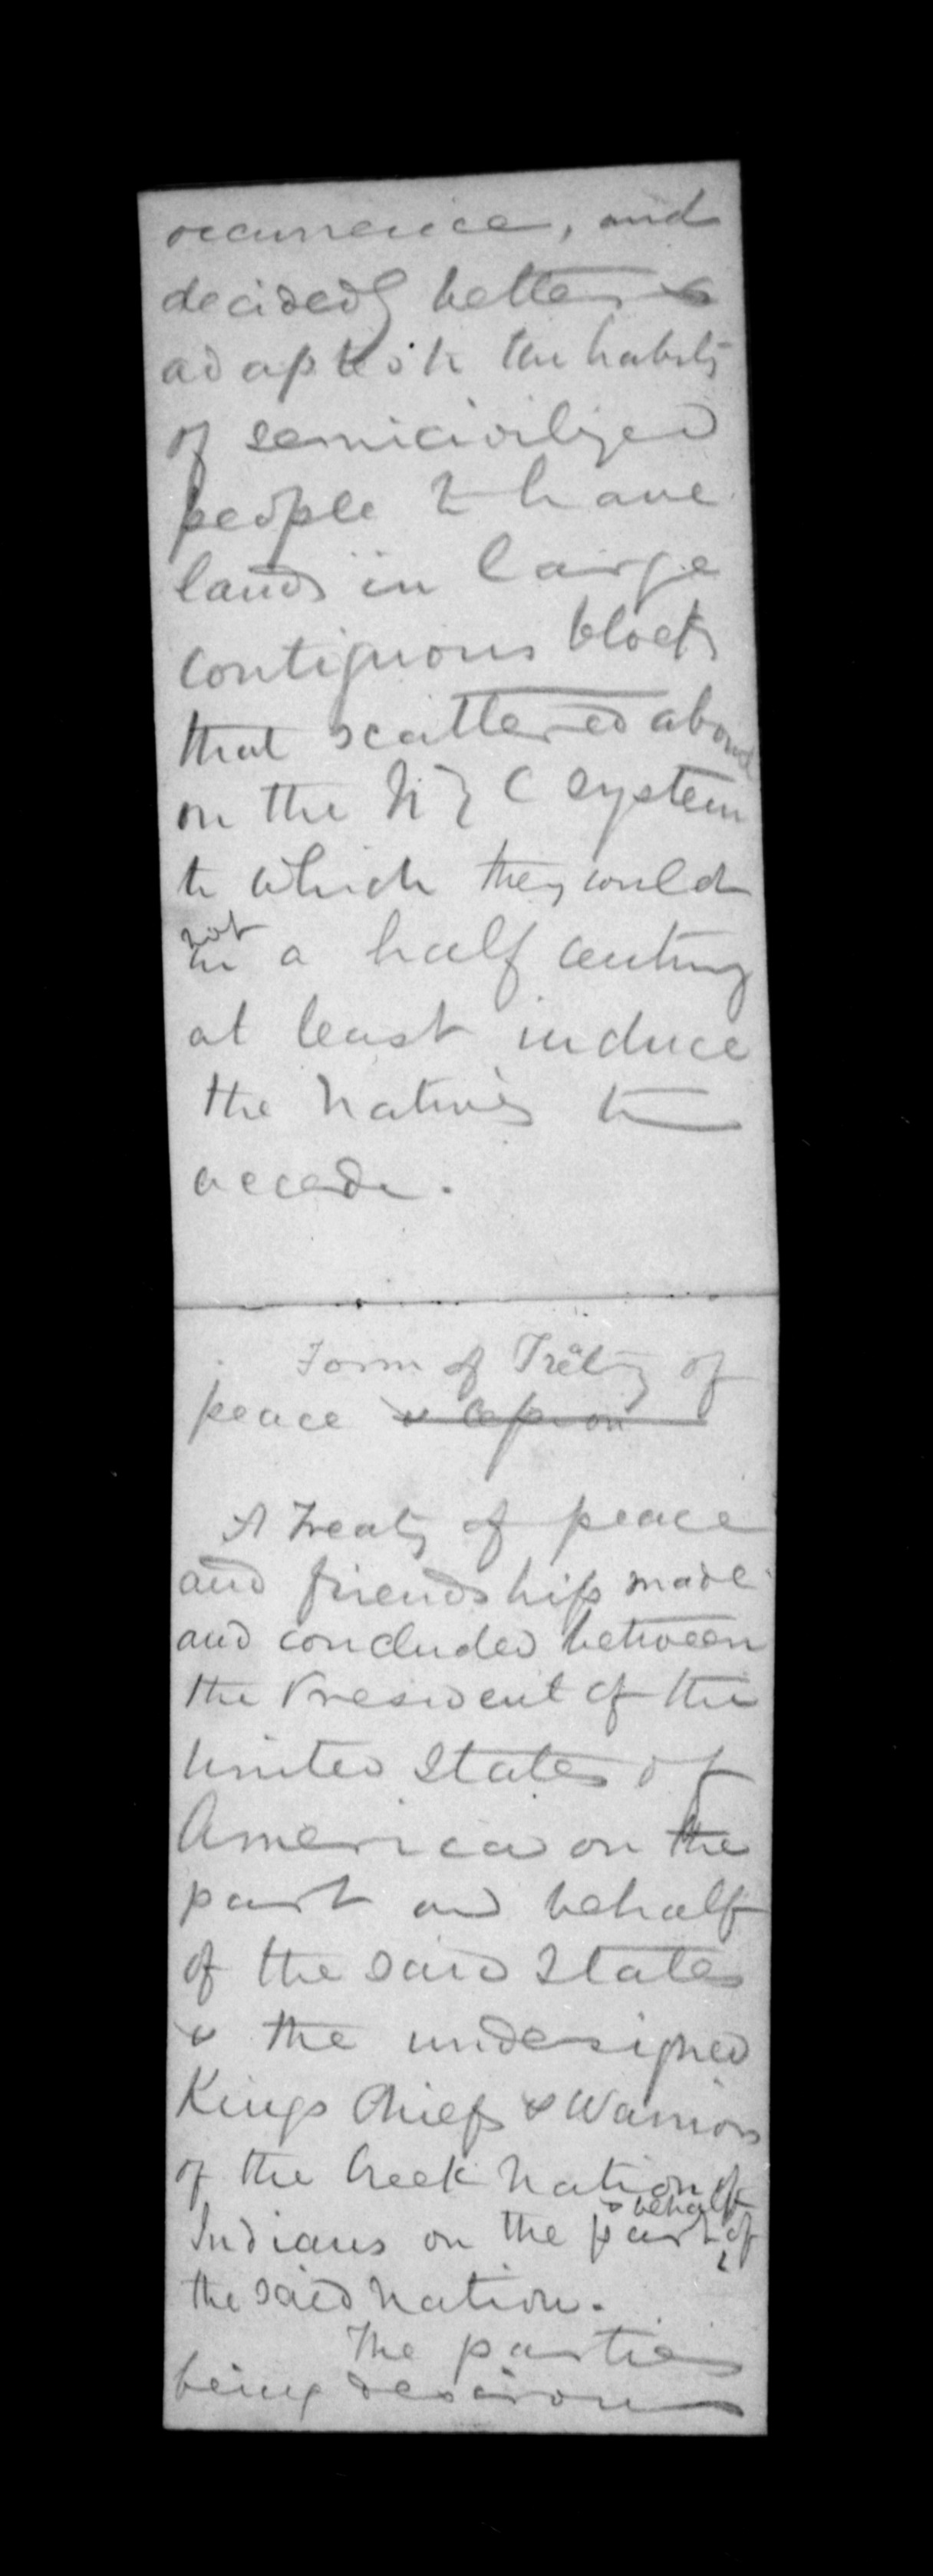 occurrence, and
decidedly better
adapted to the habits
of semicivilized
people to have
lands in large
contiguous blocks
that scattered about
on the N Z C system
to which they could
not
in a half century
at least induce
the natives to
accede.
Form of Treaty of
peace &
A Treaty of peace
and friendship made
and concluded between
the President of the
United States of
America on the
part and behalf
of the said States
& the undersigned
Kings Chiefs & Warriors
of the Creek Nation of
& behalf
Indians on the part of
the said nation.
The parties
being desirous